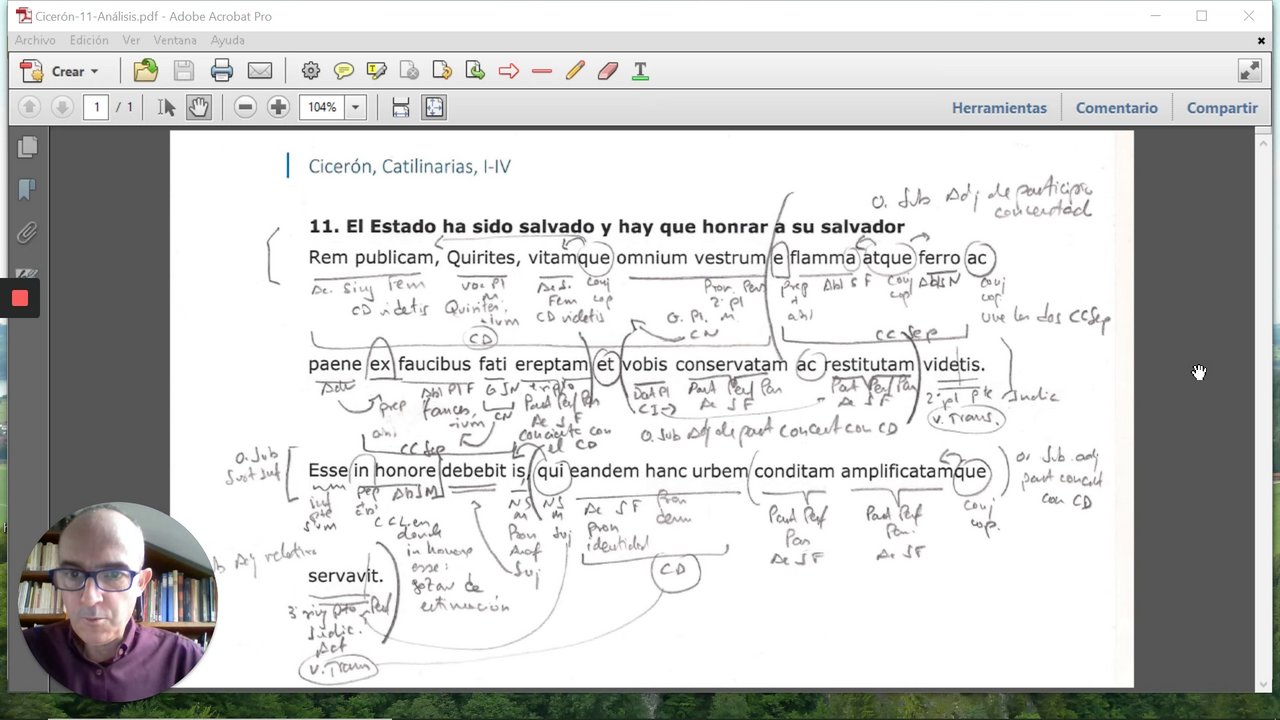 Cicerón-11-Análisis.pdf - Adobe Acrobat Pro
Archivo Edición Ver Ventana Ayuda
Crear
1 / 1 104% Herramientas Comentario Compartir
Cicerón, Catilinarias, I-IV
O. Sub Adj de participio
concertad
11. El Estado ha sido salvado y hay que honrar a su salvador
Rem publicam, Quirites, vitamque omnium vestrum e flamma atque ferro ac
Ac. Sing Fem voc Pl Ac S. conj Pron. Pers prep Abl S F conj Abl S N conj
CD videtis Quirites, Fem cop 2ª pl cop cop.
-ium CD videtis G. Pl. m. abl une los dos CCSep
CD CN CC Sep
paene ex faucibus fati ereptam et vobis conservatam ac restitutam videtis.
Adv prep Abl Pl F G S N Dat Pl Part Perf Pas Part Perf Pas 2ª pl pte Indic
abl fauces, CN Part Perf Pas CI Ac S F Ac S F V. Trans.
-ium Ac S F
concierta con O. Sub Adj de part concert con CD
CC Sep el CD
O. Sub
Sust Inf
Esse in honore debebit is, qui eandem hanc urbem conditam amplificatamque
O. Sub. adj
part concert
con CD
inf prep Abl S M N S N S Ac S F Pron Part Perf Part Perf conj
pte m m Pron dem Pas Pas cop.
sum CC L en Pron Suj identidad Ac S F Ac S F
donde Anaf
Adj relativo in honore Suj CD
esse:
servavit.
gozar de
3ª sing pto Perf estimación
Indic.
Act
V. Trans